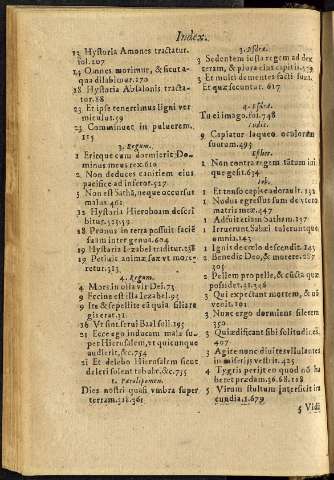 Index.
13 Hystoria Amones tractatur.
fol. 207
14 Omnes morimur, & sicut a-
qua dilabimur. 270
18 Hystoria Absalonis tracta-
tur. 88
23 Et ipse tenerrimus ligni ver
miculus. 59
23 Comminuet in puluerem.
115
3. Regum.
1 Eritque cum dormierit Do-
minus meus rex. 610
2 Non deduces canitiem eius
pacifice ad inferos. 317
5 Non est Sathã, neque occursus
malus. 461
12 Hystoria Hieroboam descri
bitur.
18 Pronus in terra possuit faciẽ
suam inter genua. 604
19 Hystoria Iezabel traditur. 258
19 Petiuit animæ suæ vt more-
retur. 313
4. Regum.
4 Mors in olla vir Dei. 73
9 Eccine est ista Iezabel. 95
9 Ite & sepellite eã quia filia re
gis erat. 31
16 Vt sint serui Baal soli. 195
21 Ecce ego inducem mala su-
per Hierusalem, vt quicunque
audierit, &c. 754
21 Et delebo Hierusalem sicut
deleri solent tabulæ, &c. 735
1. Paralipomen.
Dies nostri quasi vmbra super
terram. 318. 361
3. Esdræ.
3 Sedentem iuxta regem ad dex
teram, & plora eius capiti.
3 Et multi dementes facti sunt.
Et quæ secuntur. 617
4. Esdræ.
Tu ei imago. fol. 748
Iudic.
9 Capiatur laqueo oculorum
suorum. 495
Esther.
1 Non contra regem tãtum ini
que gessit. 634
Iob.
1 Et tenso capite adorauit. 132
1 Nudus egressus sum de vtero
matris meæ. 447
1 Adfuit etiam Satham. 137
1 Irruerunt Sabæi tulerunt que
omnia. 143
1 Ignis de cœlo descendit. 145
2 Benedic Deo, & morere. 287
301
2 Pellem pro pelle, & cũcta quæ
possidet. 31. 346
3 Qui expectant mortem, & nõ
venit. 301
3 Nunc ergo dormiens silerem
350
3 Qui ædificant sibi solitudines.
407
3 Agite nunc diuites vllulantes
in miserijs vestris. 425
4 Tygris perijt en quod nõ ha
beret prædam. 36. 68. 118
5 Virum stultum interficit ira
cundia. 1. 679
5 Vidi